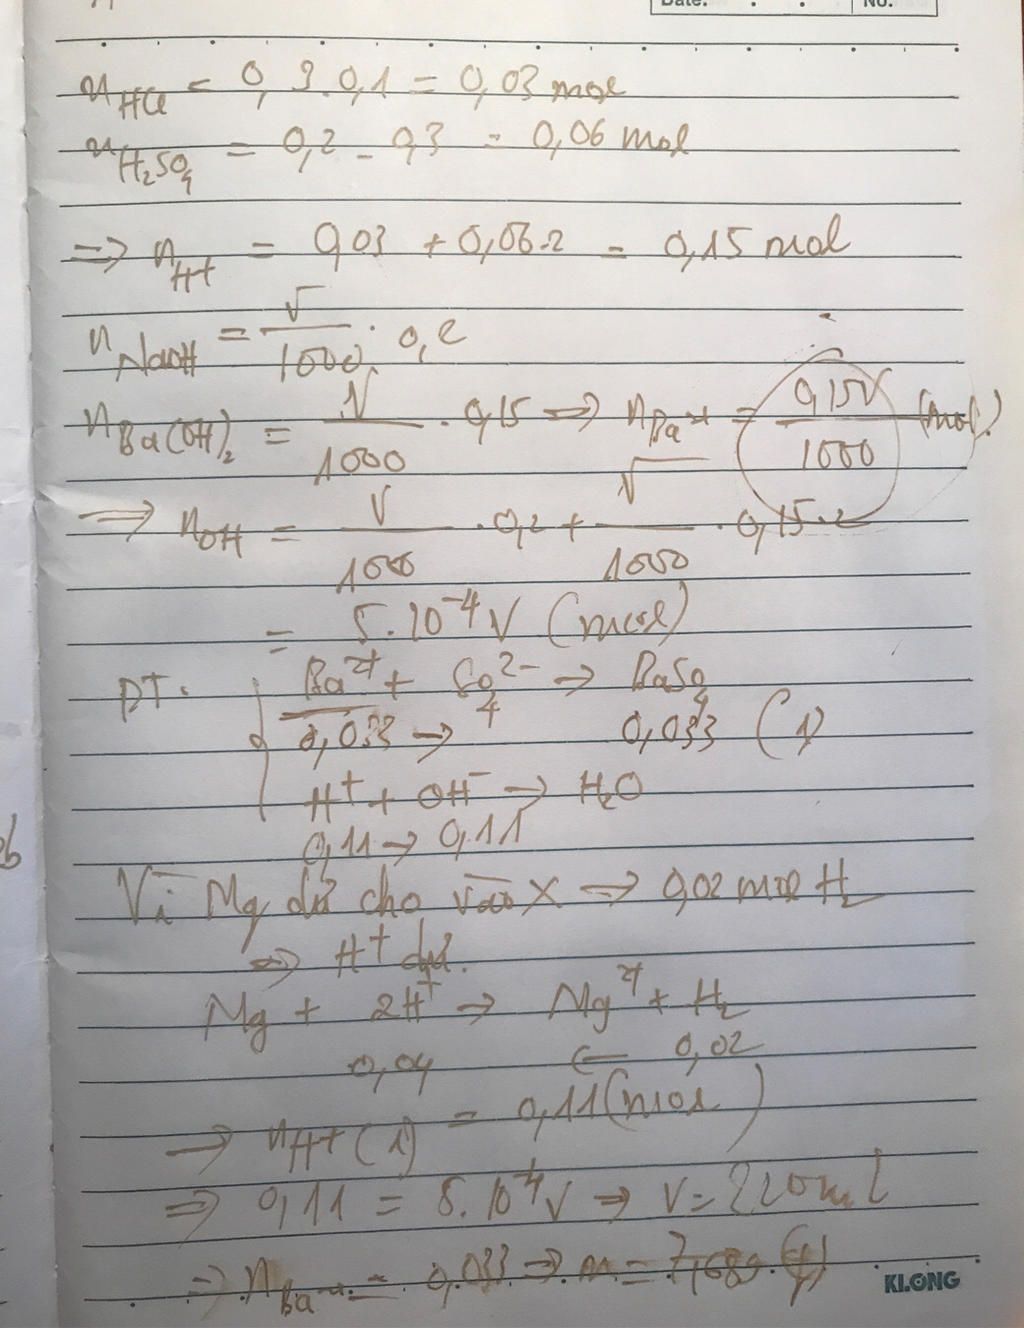 Date. No.
n HCl = 0,3.0,1 = 0,03 mol
n H2SO4 = 0,2 - 0,3 = 0,06 mol
=> n H+ = 0,03 + 0,06.2 = 0,15 mol
n NaOH = V/1000 . 0,2
n Ba(OH)2 = V/1000 . 0,15 => n Ba2+ = 0,15V/1000 (mol)
=> n OH = V/1000 . 0,2 + V/1000 . 0,15.2
= 5.10^-4 V (mol)
PT. Ba2+ + SO4 2- -> BaSO4
0,033 -> 0,033 (1)
H+ + OH- -> H2O
0,11 -> 0,11
Vì Mg dư cho vào X => 0,02 mol H2
=> H+ dư.
Mg + 2H+ -> Mg2+ + H2
0,04 <- 0,02
=> n H+ (1) = 0,11 (mol)
=> 0,11 = 5.10^-4 V => V = 220 ml
=> n Ba2+ = 0,033 => m = 7,689 (g)
KLONG